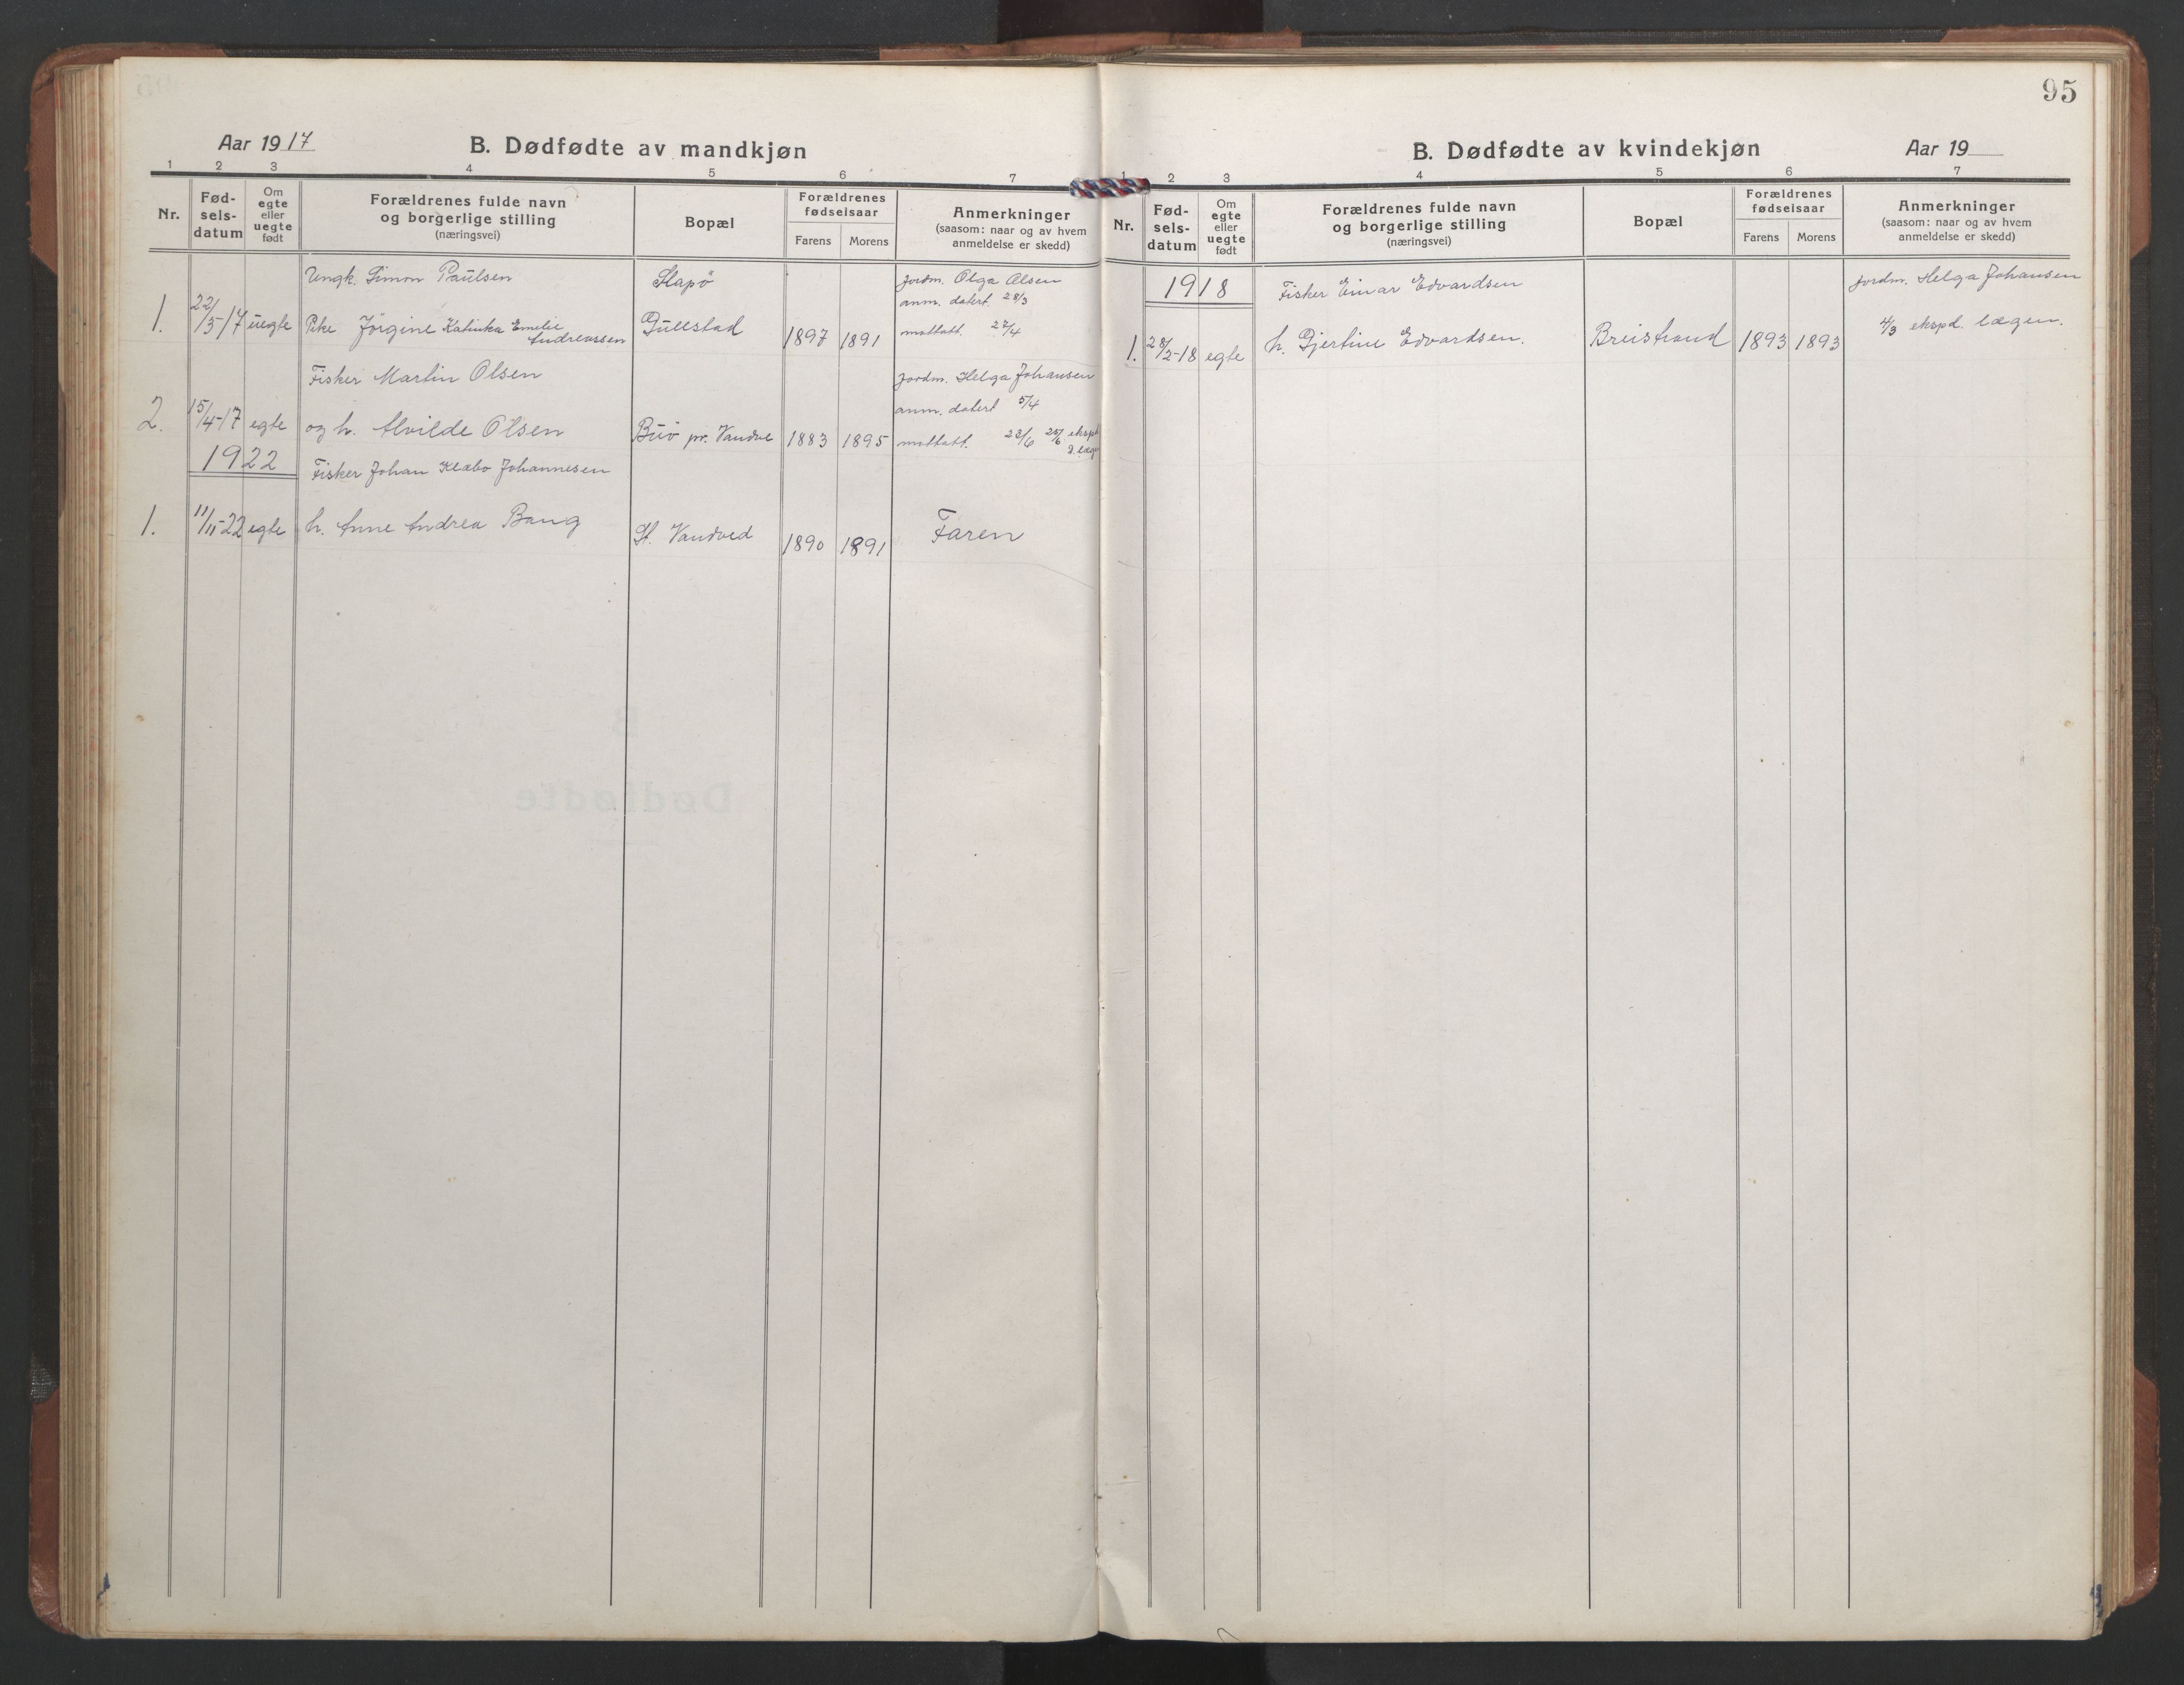 95
Aar 1917
B. Dødfødte av mandkjøn
1 2 3 4 5 6 7
Nr.
Fød-
sels-
datum
Om
egte
eller
uegte
født
Forældrenes fulde navn
og borgerlige stilling
(næringsvei)
Bopæl
Forældrenes
fødselsaar
Farens Morens
Anmerkninger
(saasom: naar og av hvem
anmeldelse er skedd)
Ungk. Simon Paulsen Slapö jordm. Olga Olsen
anm. datert 28/3
1. 22/3-17 uegte Pike Jörgine Katinka Emelie Gullstad 1897 1891 mottatt. 27/4
Andreassen
Fisker Martin Olsen jordm. Helga Johansen
anm. datert 5/4
2. 15/4-17 egte og h. Alvilde Olsen Buö pr. Vandve 1883 1895 mottatt. 23/6 25/6 ekspd
d. læge
1922
Fisker Johan Klæbo Johannesen
1. 11/11-22 egte h. Anne Andrea Bang St. Vandved 1890 1891 Faren
B. Dødfødte av kvindekjøn
Aar 19
1 2 3 4 5 6 7
Nr.
Fød-
sels-
datum
Om
egte
eller
uegte
født
Forældrenes fulde navn
og borgerlige stilling
(næringsvei)
Bopæl
Forældrenes
fødselsaar
Farens Morens
Anmerkninger
(saasom: naar og av hvem
anmeldelse er skedd)
1918 Fisker Einar Edvardsen jordm. Helga Johansen
1. 28/2-18 egte h. Gjertine Edvardsen. Breistrand 1893 1893 4/3 ekspd. lægen.